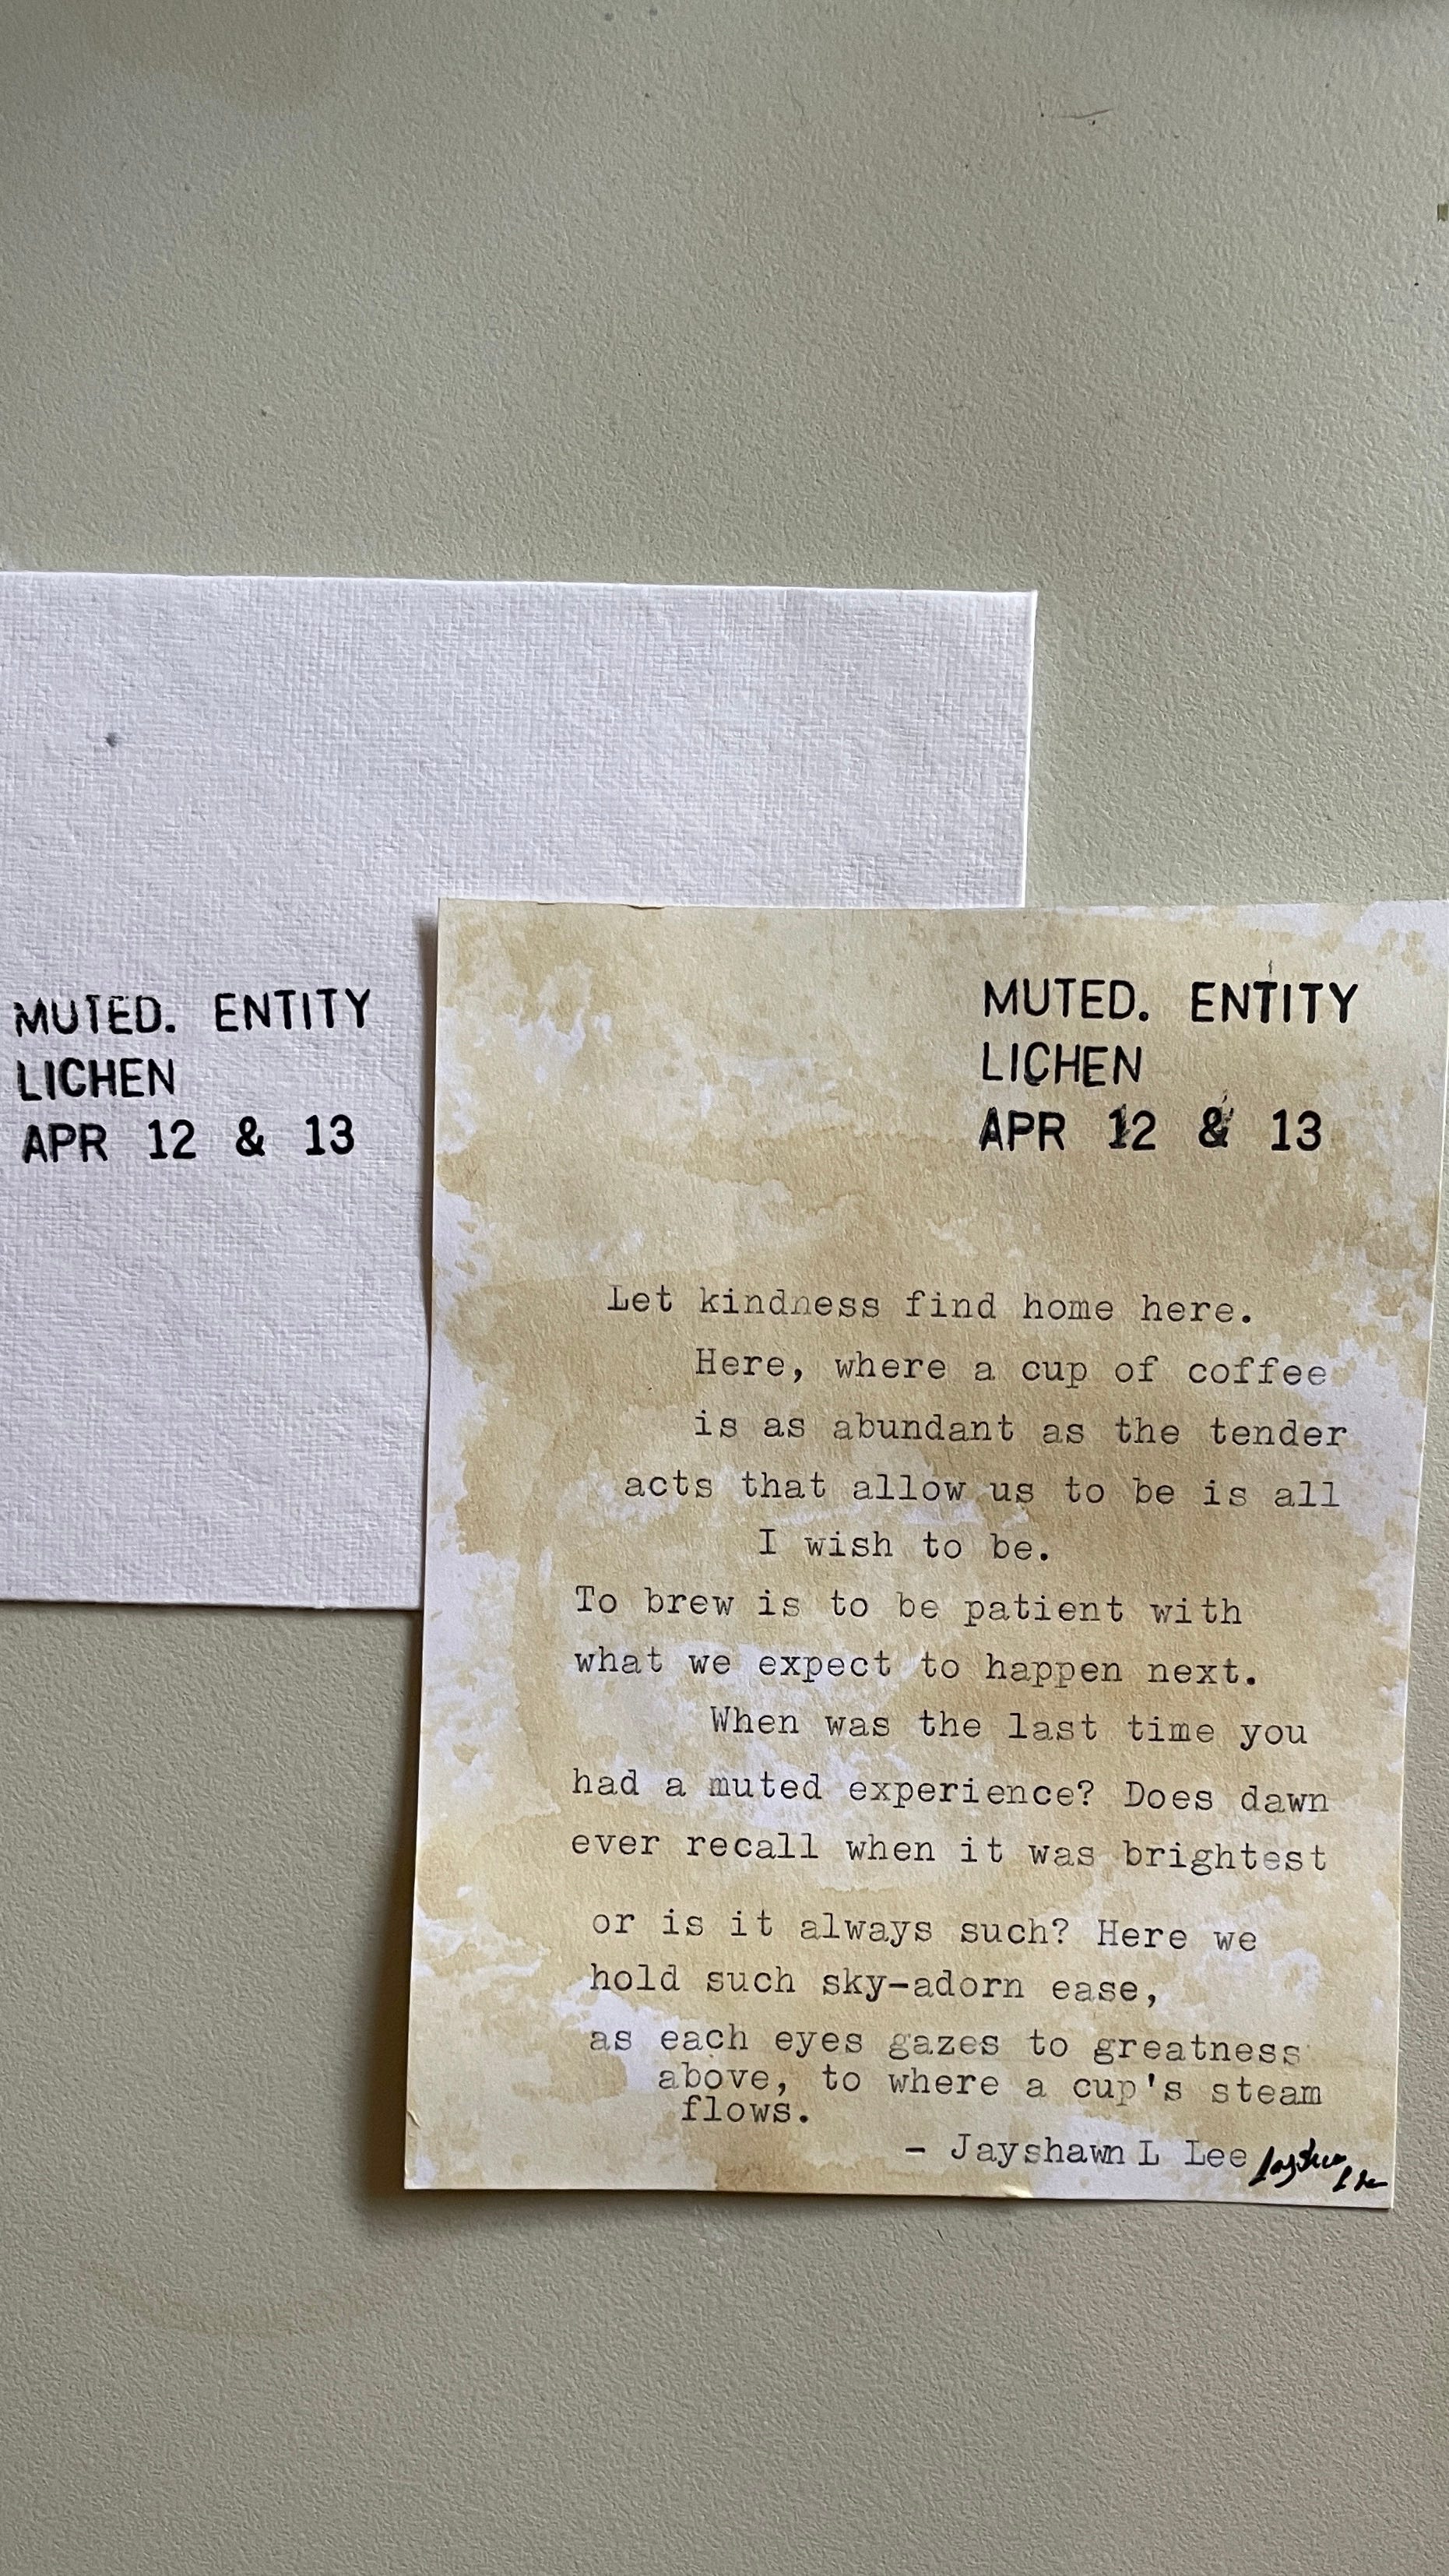 MUTED. ENTITY
LICHEN
APR 12 & 13
MUTED. ENTITY
LICHEN
APR 12 & 13
Let kindness find home here.
Here, where a cup of coffee
is as abundant as the tender
acts that allow us to be is all
I wish to be.
To brew is to be patient with
what we expect to happen next.
When was the last time you
had a muted experience? Does dawn
ever recall when it was brightest
or is it always such? Here we
hold such sky-adorn ease,
as each eyes gazes to greatness
above, to where a cup's steam
flows.
- Jayshawn L Lee